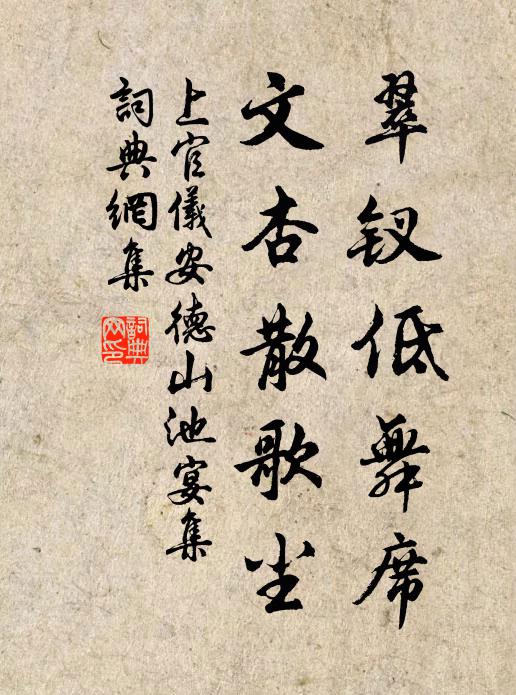 翠钗低舞席
文杏散歌尘
上官儀安德山池宴集
詞典網集
詞典網印